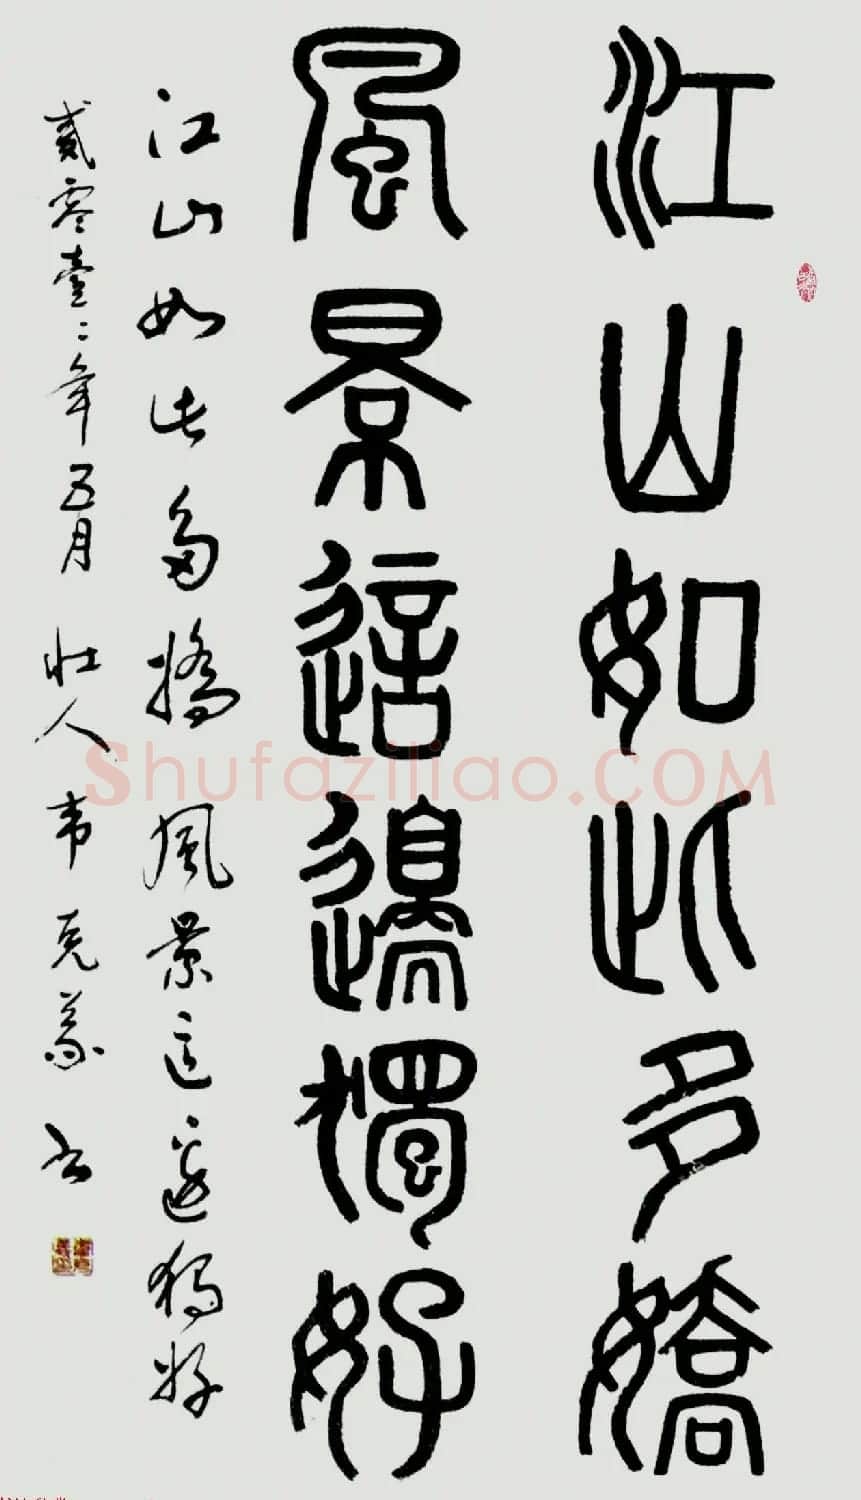 江山如此多嬌
風景這邊獨好
江山如此多嬌 風景這邊獨好
貳零壹二年五月 壮人 韦克義 书
Shufaziliao.COM